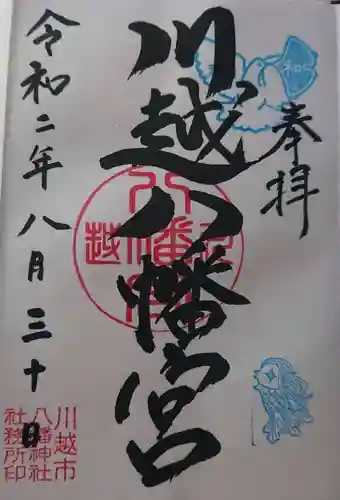 奉拝
川越八幡宮
令和二年八月三十日
川越市
八幡神社
社務所印